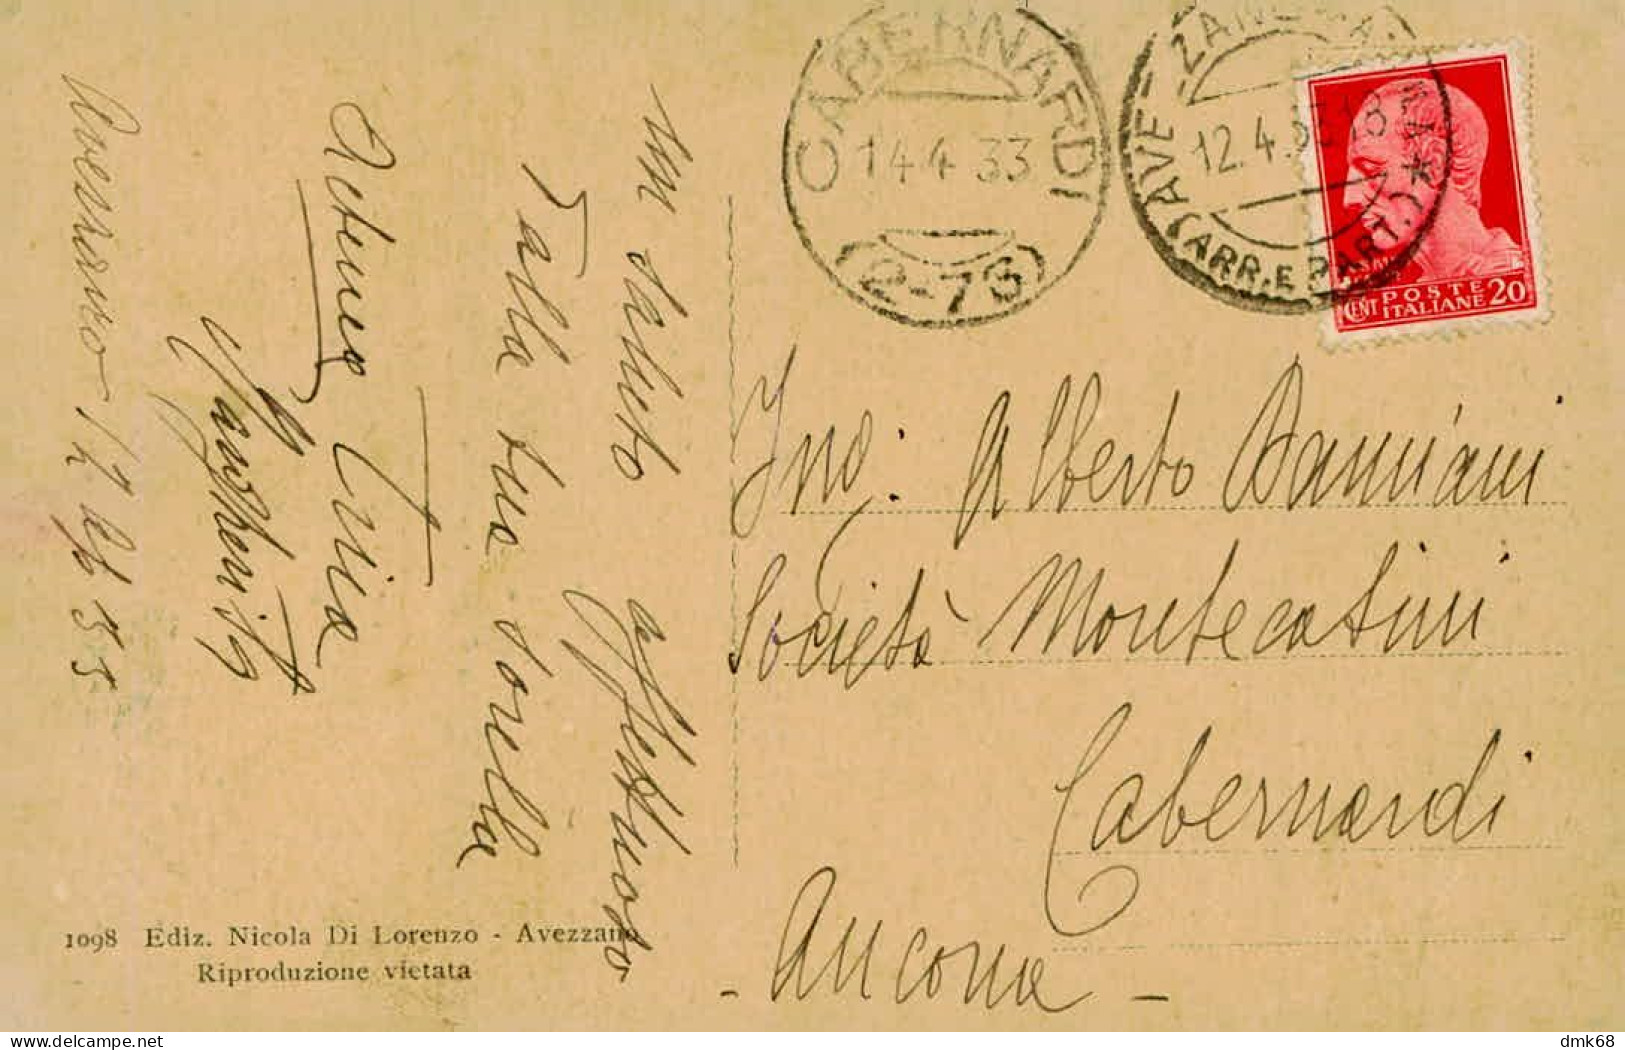 Un saluto affettuoso
Dalla tua sorella
Livia
Margherita
Avezzano 12 4 33
1098 Ediz. Nicola Di Lorenzo - Avezzano
Riproduzione vietata
CABERNARDI
14.4 33
(2-73)
AVEZZANO
12.4.33 18
(ARR.E PART.)
CENT POSTE 20
ITALIANE
Ing: Alberto Damiani
Società Montecatini
Cabernardi
- Ancona -
dmk68